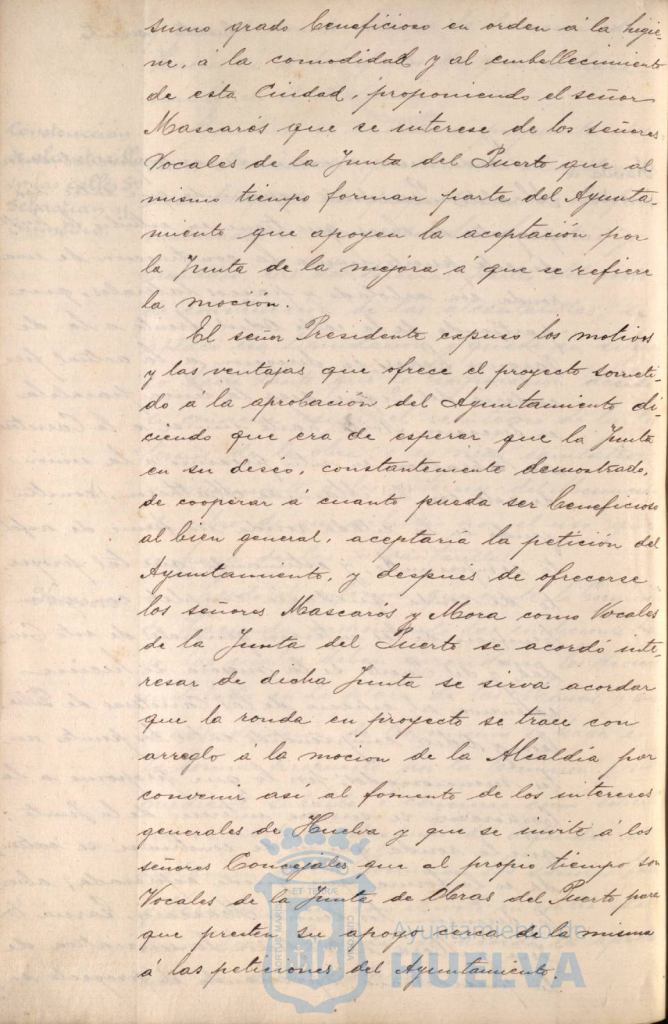 sumo grado beneficioso en orden á la higie-
ne, á la comodidad y al embellecimiento
de esta Ciudad, proponiendo el señor
Mascarós que se interese de los señores
Vocales de la Junta del Puerto que al
mismo tiempo forman parte del Ayunta-
miento que apoyen la aceptación por
la Junta de la mejora á que se refiere
la moción.
El señor Presidente expuso los motivos
y las ventajas que ofrece el proyecto someti-
do á la aprobación del Ayuntamiento di-
ciendo que era de esperar que la Junta
en su deseo, constantemente demostrado,
de cooperar á cuanto pueda ser beneficioso
al bien general, aceptaría la petición del
Ayuntamiento, y después de ofrecerse
los señores Mascarós y Mora como Vocales
de la Junta del Puerto se acordó inte-
resar de dicha Junta se sirva acordar
que la ronda en proyecto se trace con
arreglo á la mocion de la Alcaldía por
convenir así al fomento de los intereses
generales de Huelva y que se invite á los
señores Concejales que al propio tiempo son
Vocales de la Junta de Obras del Puerto para
que presten su apoyo cerca de la misma
á las peticiones del Ayuntamiento.
Ayuntamiento de
HUELVA
PORTUS MARIS ET TERRAE CUSTODIO